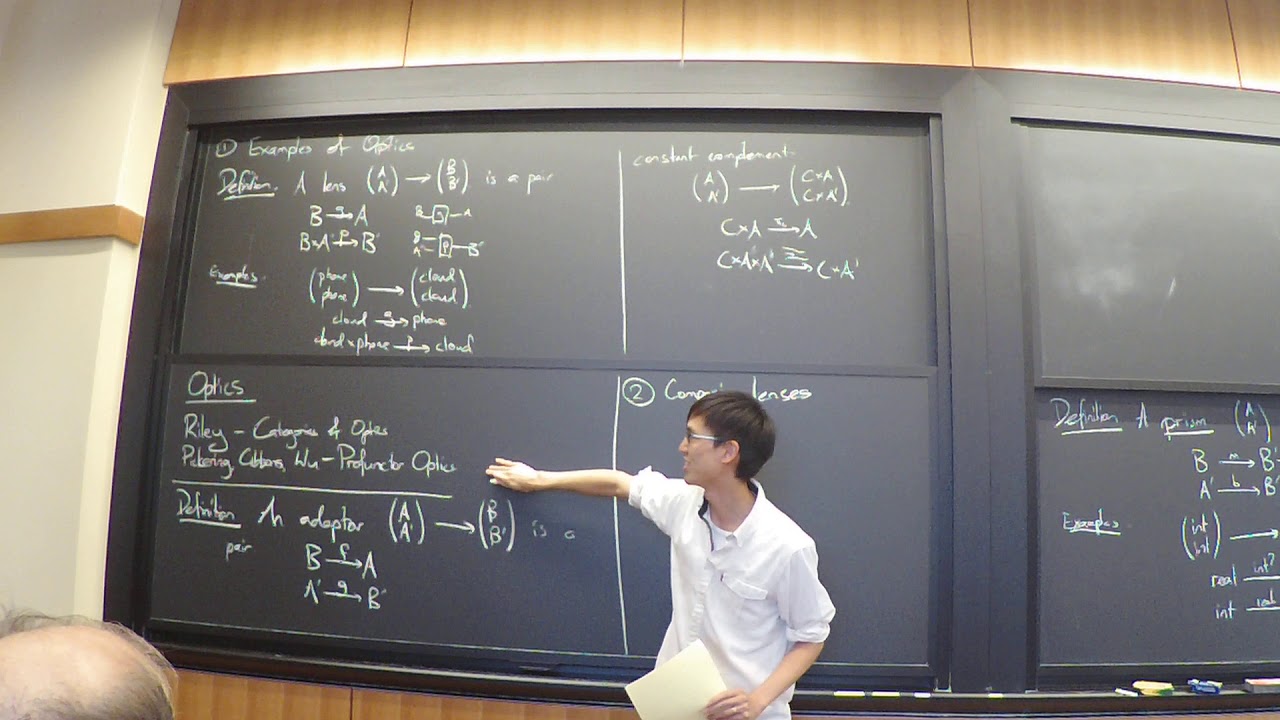 ① Examples of Optics
Definition. A lens (A A') → (B B') is a pair
B →g A   B g A
B×A' →p B'   B A' p B'
Examples. (phone phone) → (cloud cloud)
cloud →g phone
cloud×phone →p cloud
constant complement
(A A') → (C×A C×A')
C×A → A
C×A×A' → C×A'
Optics
Riley - Categories of Optics
Pickering, Gibbons, Wu - Profunctor Optics
Definition An adaptor (A A') → (B B') is a
pair
B →f A
A' →g B'
② lenses
Definition A prism (A A')
B →m B'
A' →b B'
Examples (int int) →
real int?
int real